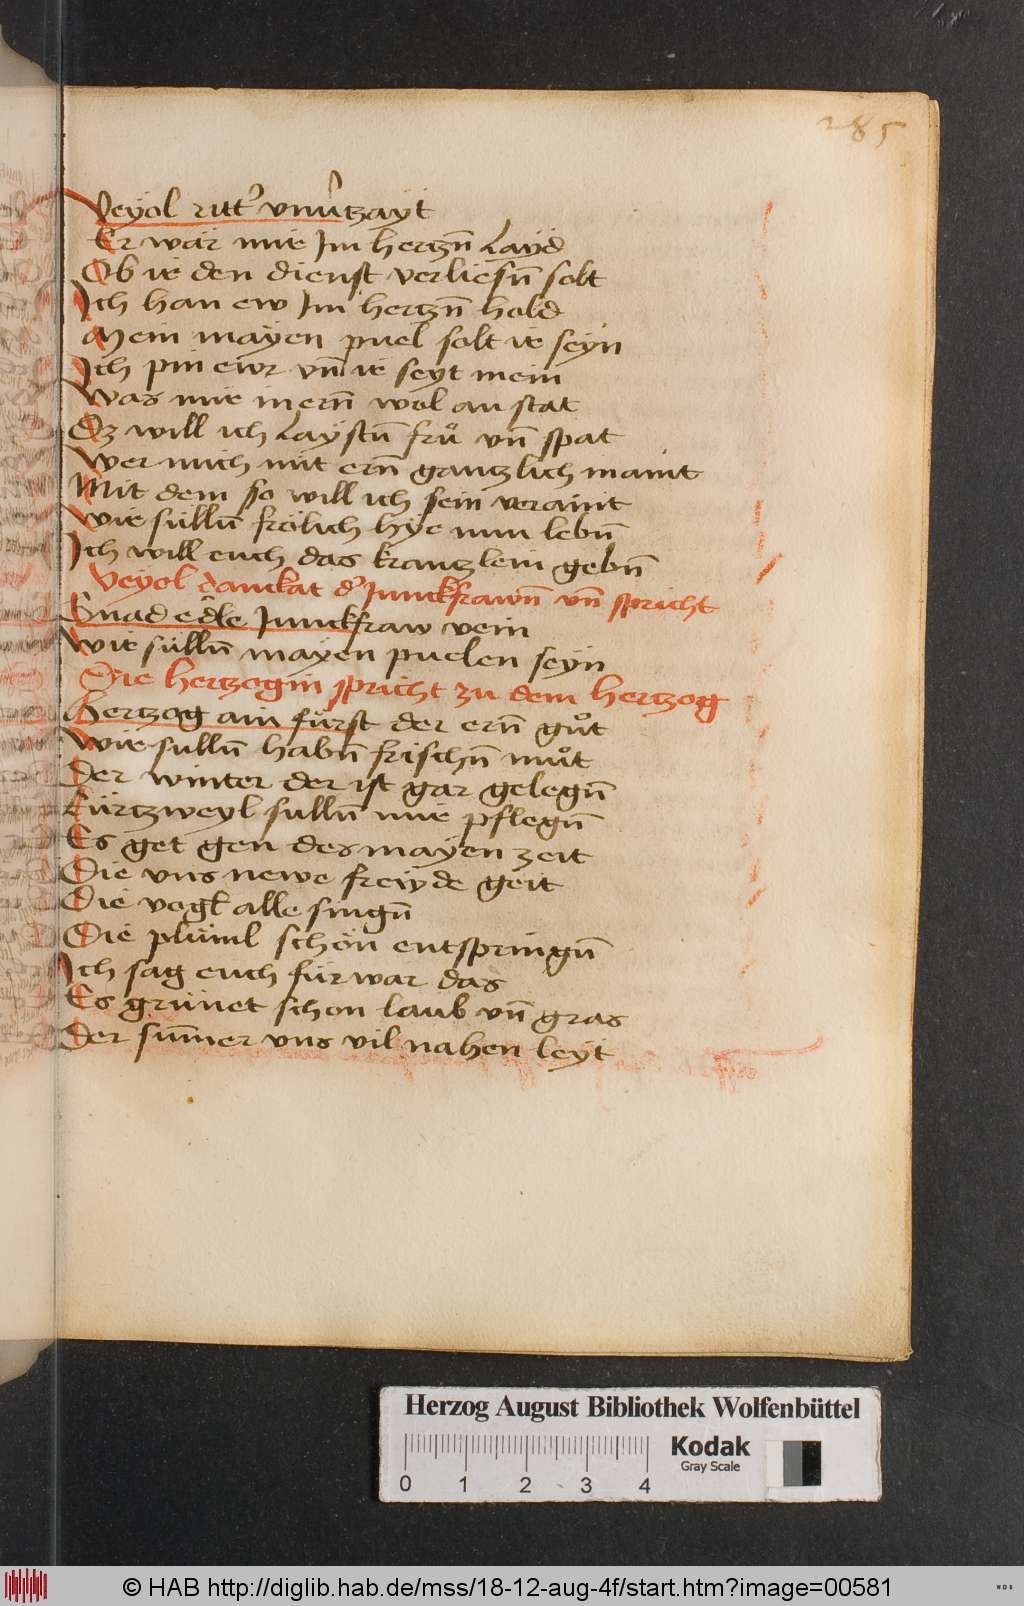 285
Veyol ritt' vnu'tzayt
Er wär mir Im hertzn̄ Layd
Ob ir den dienst verliesn̄ solt
Ich han ew Im hertzn̄ hold
Mein mayen puel solt ir seyn
Ich pin ewr vn̄ ir seyt mein
Was mir in ern̄ wol an stat
Dz will ich Laystn̄ frů vn̄ spat
Wer mich mit ern̄ gantzlich maint
Mit dem so will ich sein veraint
Wir sülln̄ frölich hye nun lebn̄
Ich will euch das krantzlein gebn̄
Veyol danckat d' Junckfrawn̄ vn̄ spricht
Gnad edle Junckfraw vein
Wir sülln̄ mayen puelen seyn
Die hertzogin spricht zu dem hertzog
Hertzog ain fürst der ern̄ gůt
Wir sulln̄ habn̄ frischn̄ můt
Der winter der ist gar gelegn̄
Kürtzweyl sulln̄ mir pflegn̄
Es get gen des mayen zeit
Die vns newe freyde geit
Die vogl alle singn̄
Die plüml schön entspringn̄
Ich sag euch für war das
Es grünet schon laub vn̄ gras
Der sum̄er vns vil nahen leyt
Herzog August Bibliothek Wolfenbüttel
Kodak
Gray Scale
0 1 2 3 4
© HAB http://diglib.hab.de/mss/18-12-aug-4f/start.htm?image=00581